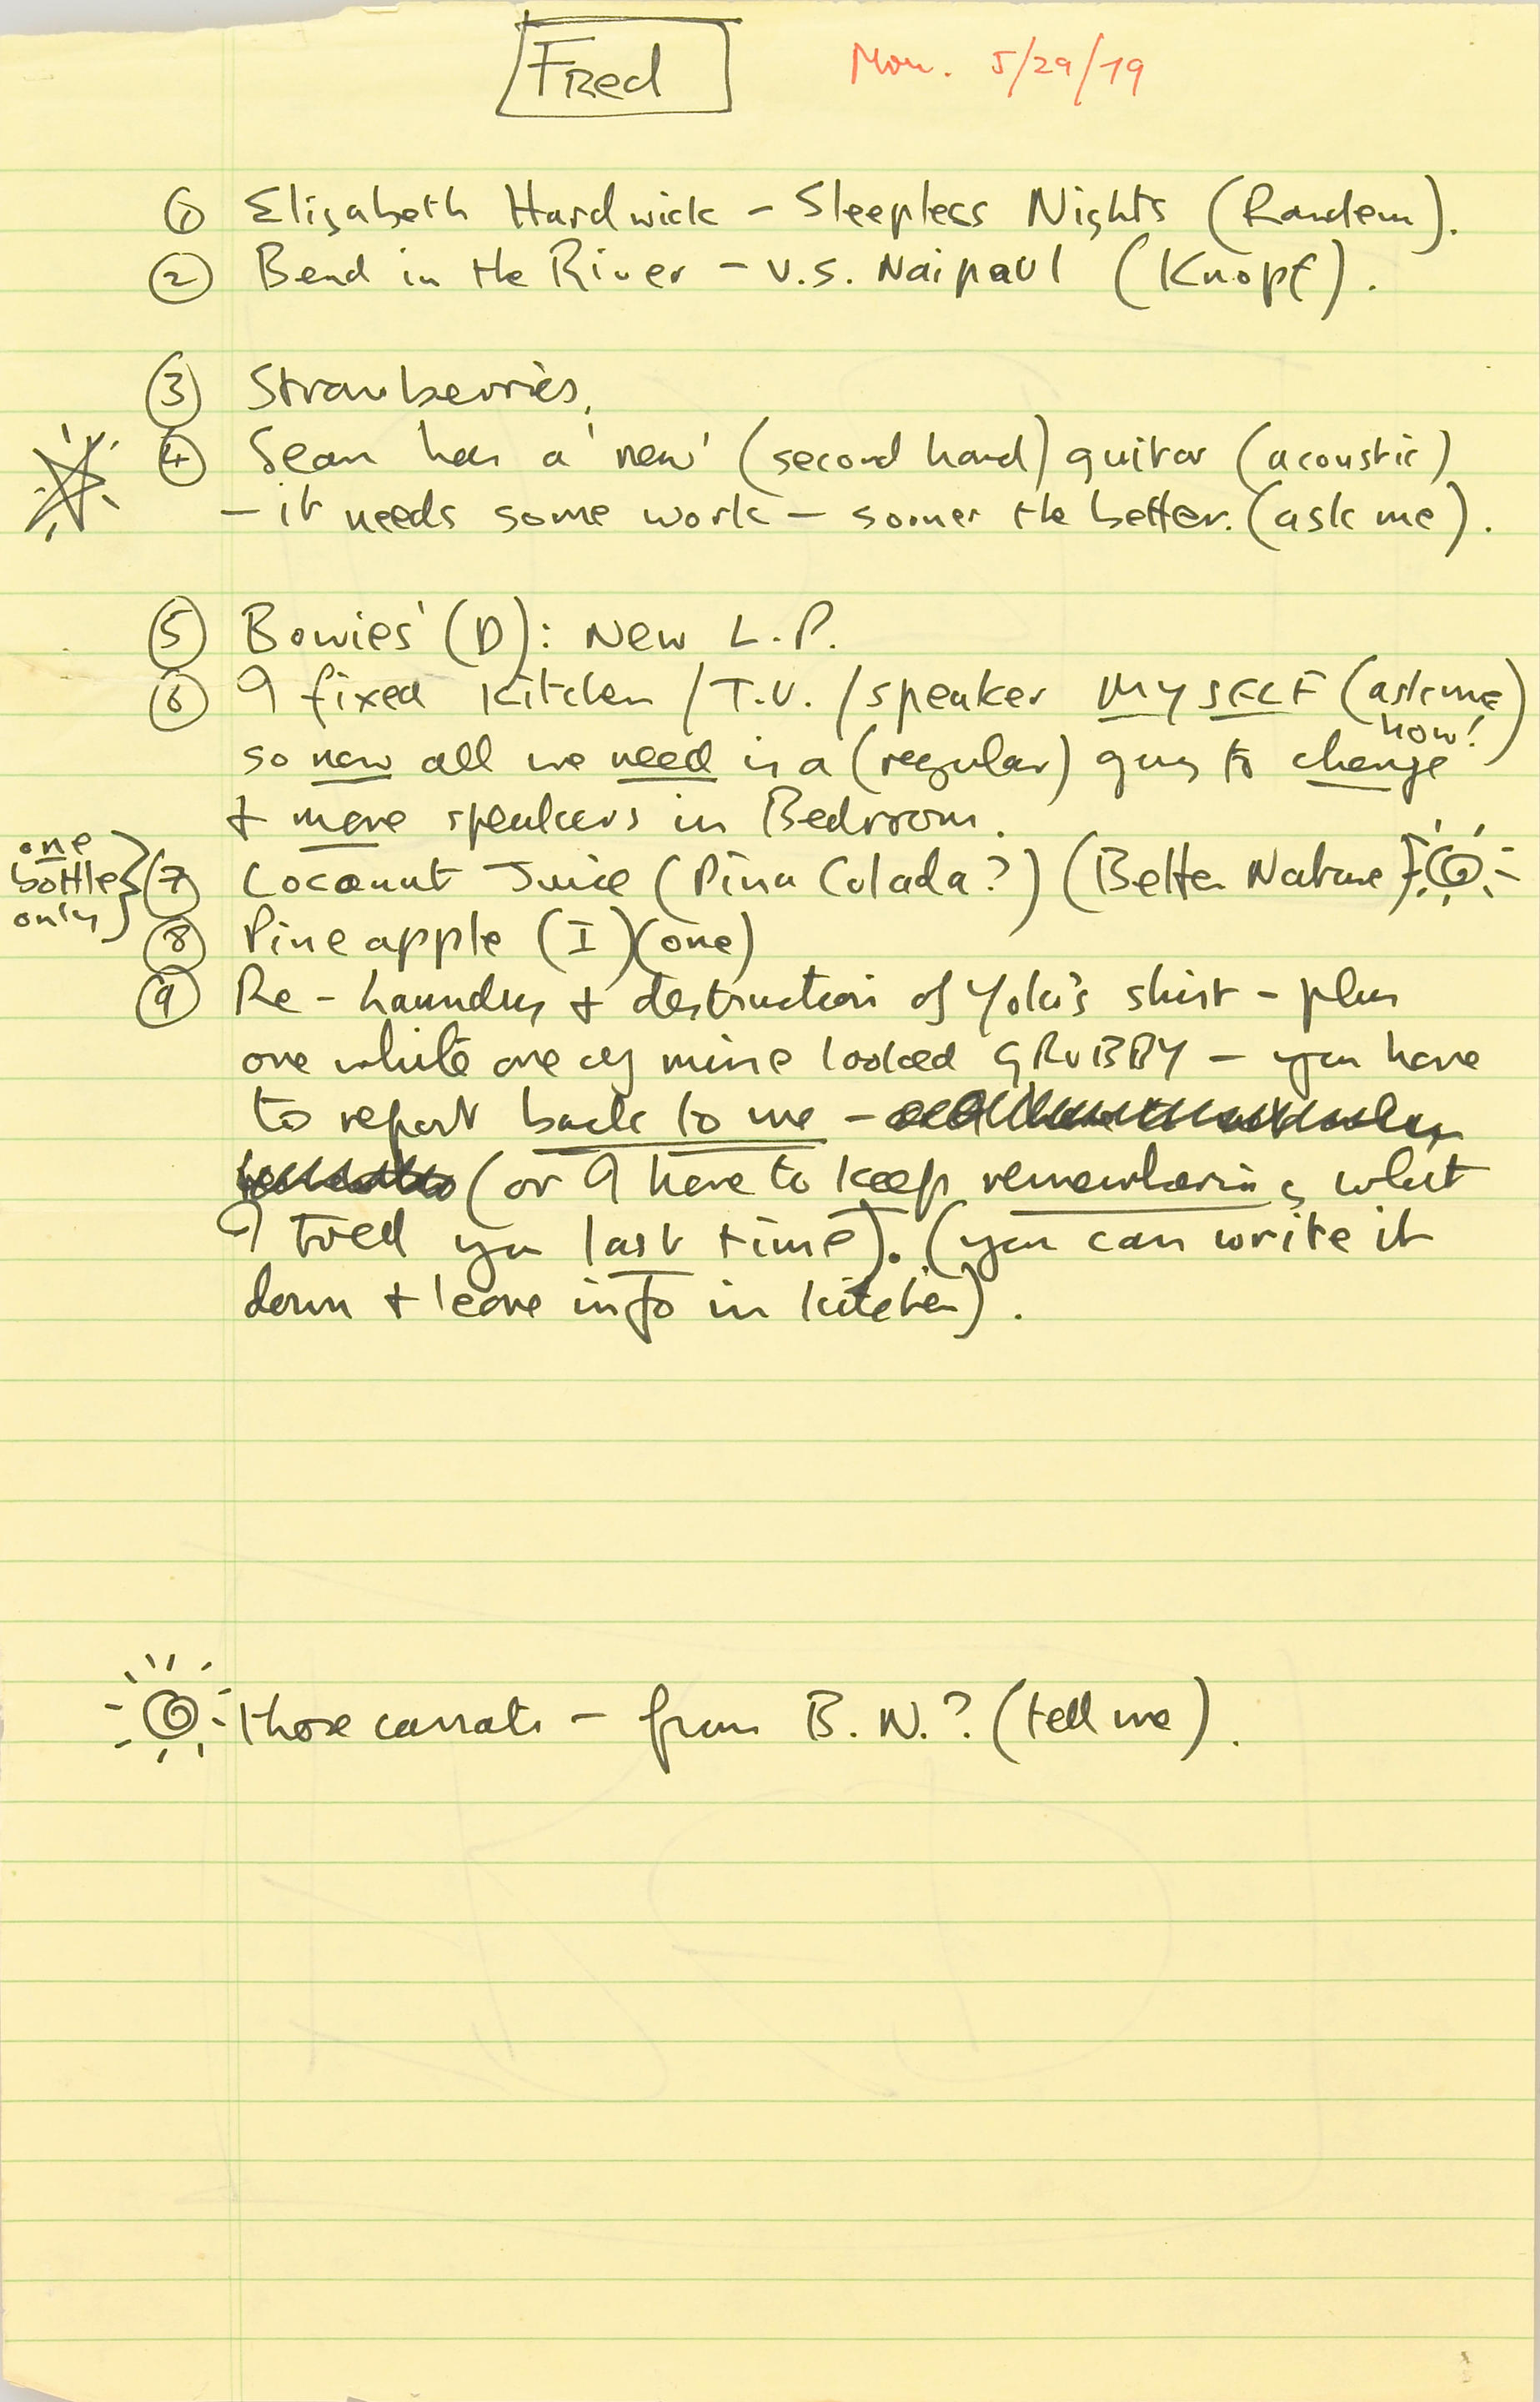 Fred
Mon. 5/29/79
① Elizabeth Hardwick - Sleepless Nights (Random).
② Bend in the River - V.S. Naipaul (Knopf).
③ Strawberries,
④ Sean has a 'new' (second hand) guitar (acoustic)
- it needs some work - sooner the better. (ask me).
⑤ Bowies' (D): New L.P.
⑥ I fixed kitchen / T.V. / speaker MYSELF (ask me how!)
so now all we need is a (regular) guy to change
+ move speakers in Bedroom.
one bottle only } ⑦ Coconut Juice (Pina Colada?) (Better Nature)
⑧ Pineapple (I) (one)
⑨ Re - laundry + destruction of Yoko's shirt - plus
one white one of mine looked GRUBBY - you have
to report back to me -
(or I have to keep remembering what
I told you last time). (you can write it
down + leave info in kitchen).
those carrots - from B.N.? (tell me).